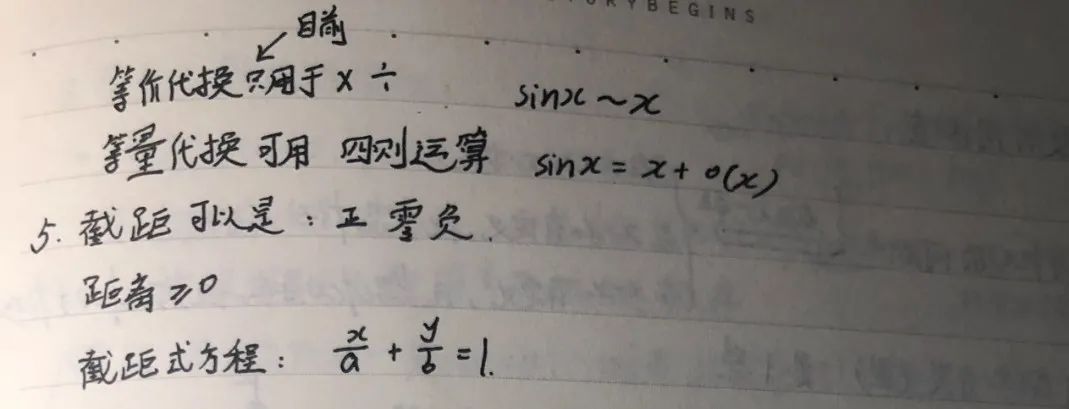 ORYBEGINS
目前
等价代换只用于 × ÷ sinx ~ x
等量代换可用 四则运算 sinx = x + o(x)
5. 截距可以是：正 零 负.
距离 ≥ 0
截距式方程： x/a + y/b = 1.